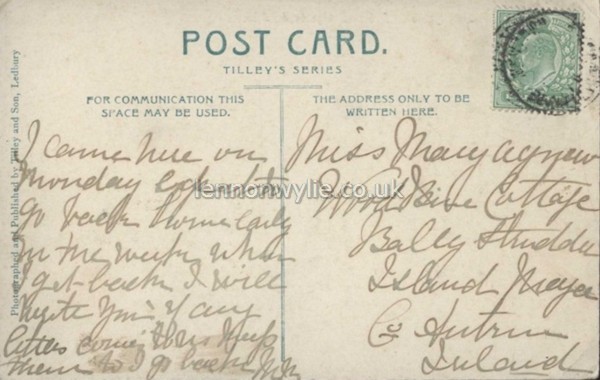 POST CARD.
TILLEY'S SERIES
FOR COMMUNICATION THIS
SPACE MAY BE USED.
THE ADDRESS ONLY TO BE
WRITTEN HERE.
Photographed and Published by Tilley and Son, Ledbury
I came here on
Monday expect to
go back home early
in the week when
I get back I will
write you if any
letters come to us keep
them to I go back
lennonwylie.co.uk
Miss Mary Agnew
Woodbine Cottage
Bally
Island Magee
Co Antrim
Ireland